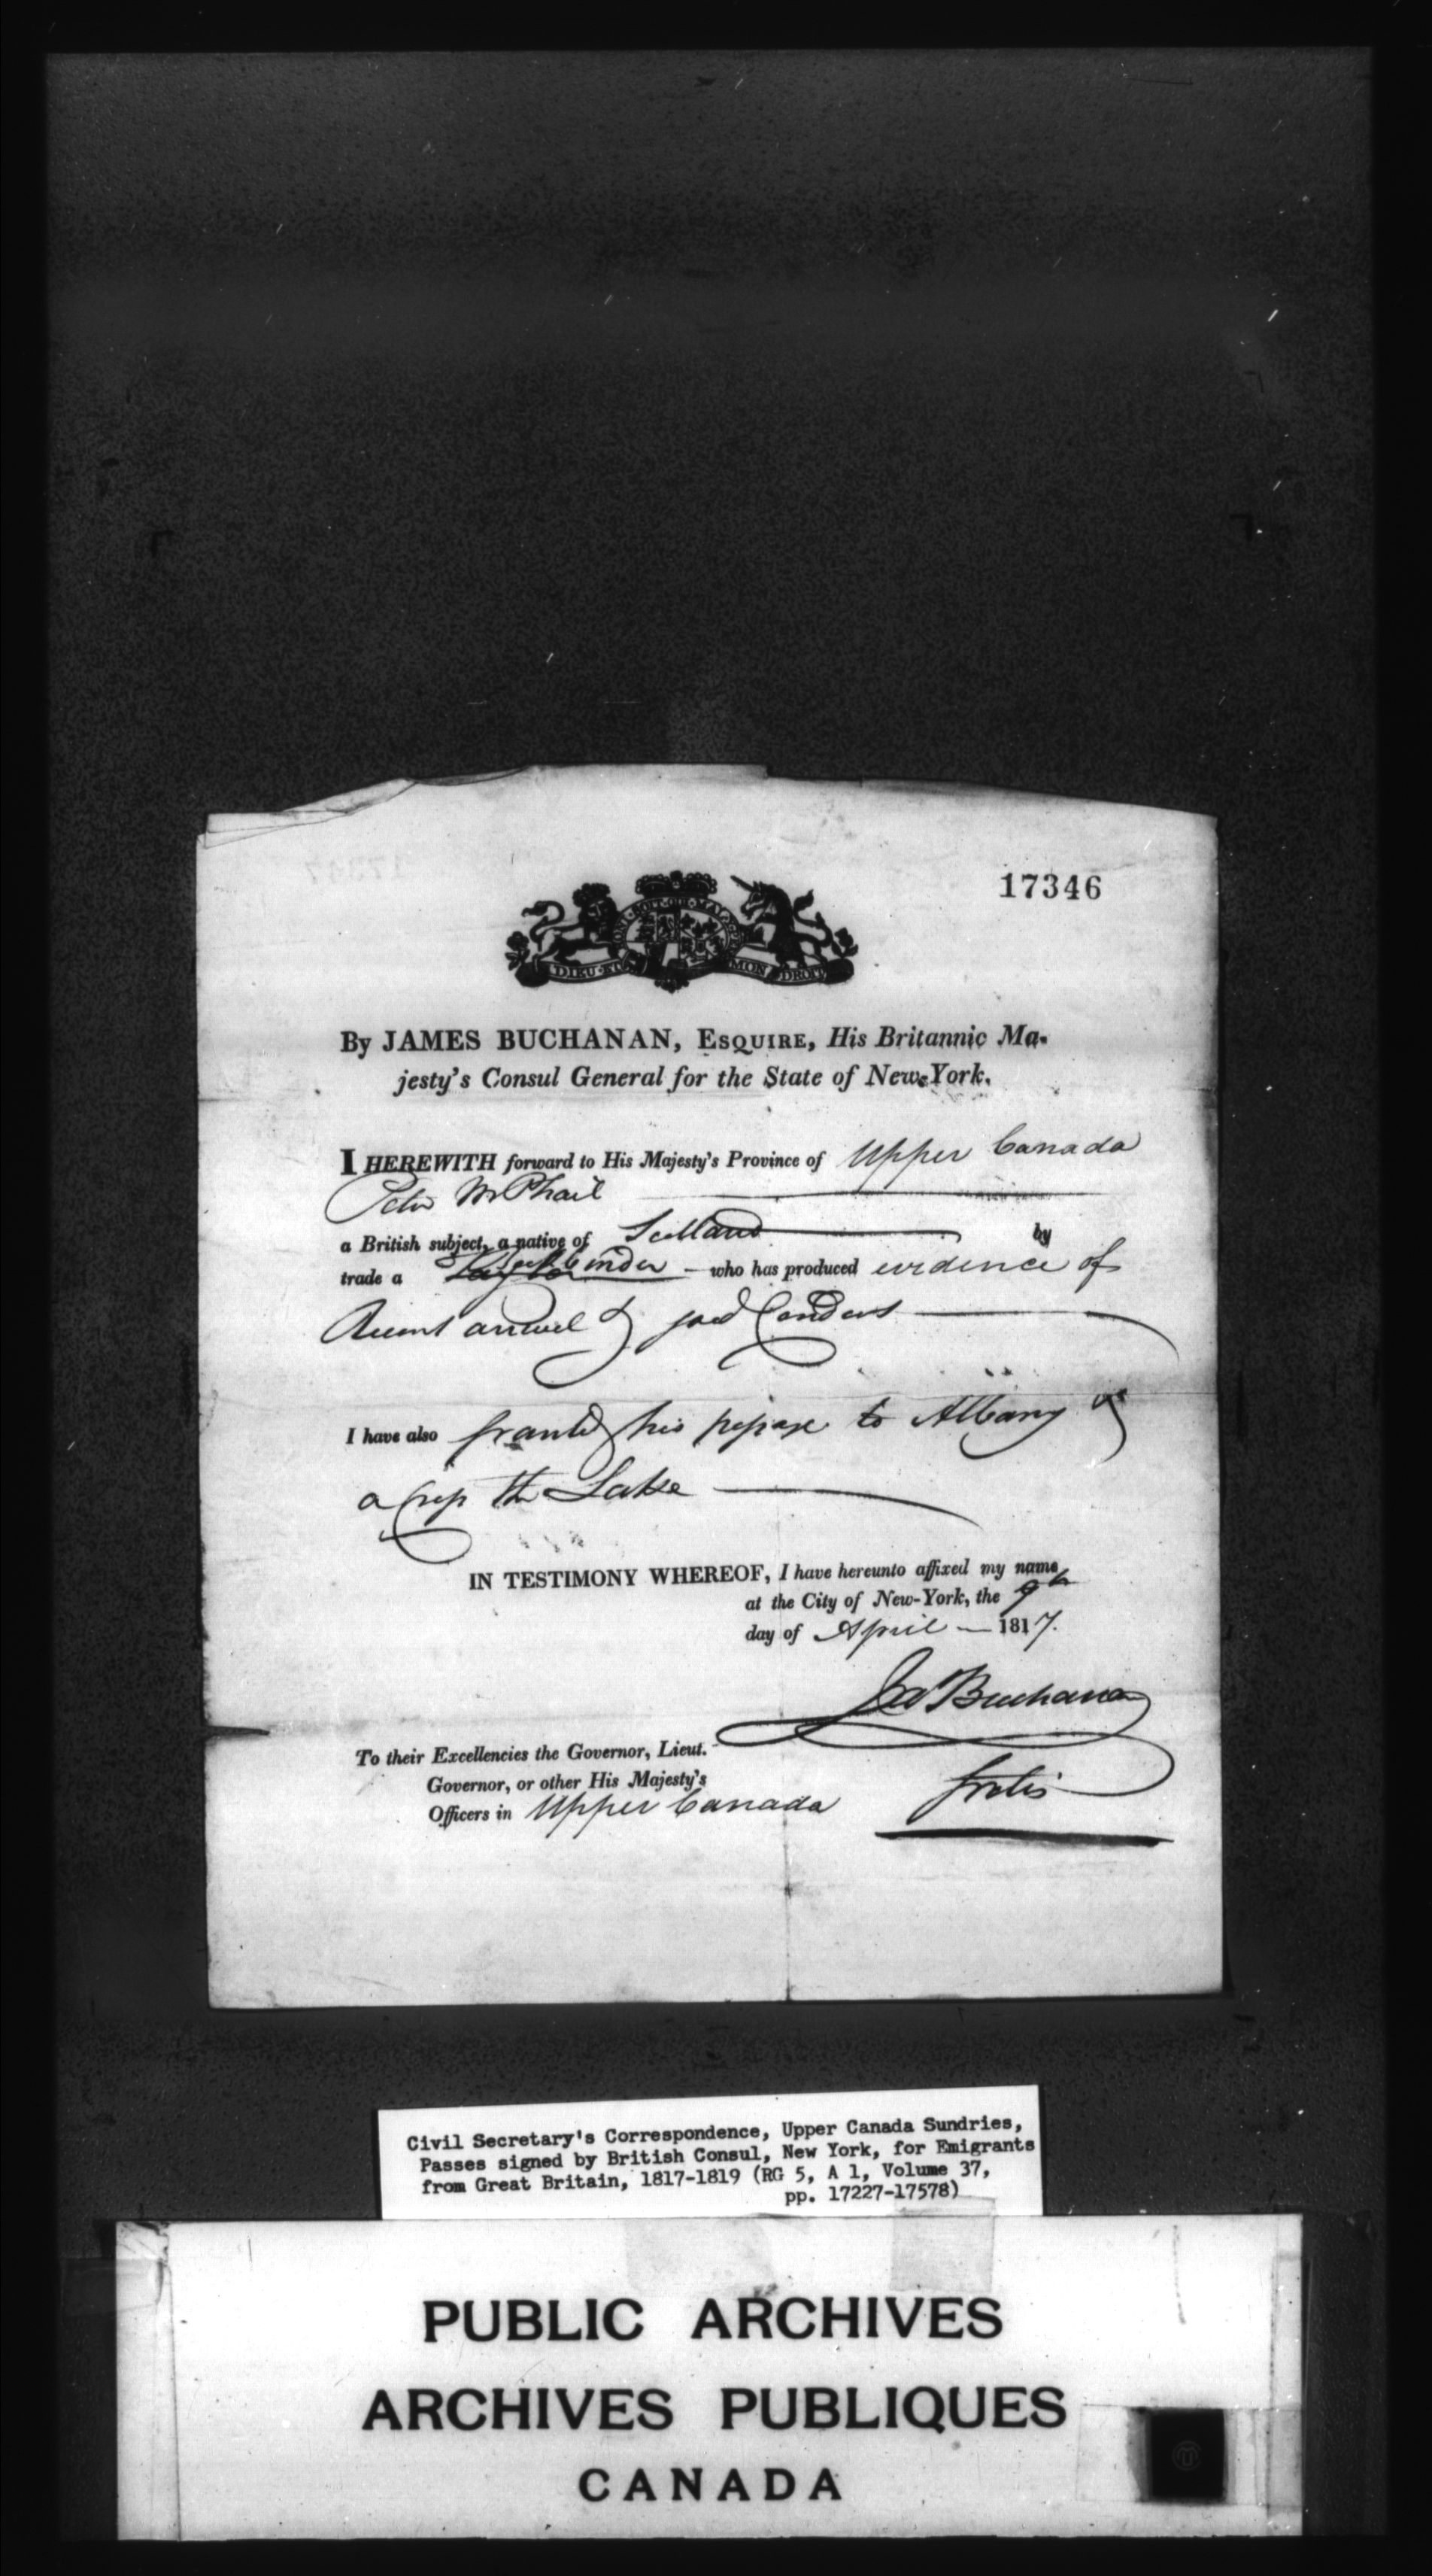 17346
HONI·SOIT·QUI·MAL
DIEU·ET MON DROIT
By JAMES BUCHANAN, ESQUIRE, His Britannic Ma-
jesty's Consul General for the State of New-York.
I HEREWITH forward to His Majesty's Province of Upper Canada
Peter McPhail
a British subject, a native of Scotland by
trade a binder who has produced evidence of
Recent arrival & good Conduct
I have also granted his passage to Albany &
across the Lake
IN TESTIMONY WHEREOF, I have hereunto affixed my name
at the City of New-York, the 9th
day of April 1817.
Jas Buchanan
To their Excellencies the Governor, Lieut.
Governor, or other His Majesty's
Officers in Upper Canada
Gratis
Civil Secretary's Correspondence, Upper Canada Sundries,
Passes signed by British Consul, New York, for Emigrants
from Great Britain, 1817-1819 (RG 5, A 1, Volume 37,
pp. 17227-17578)
PUBLIC ARCHIVES
ARCHIVES PUBLIQUES
CANADA